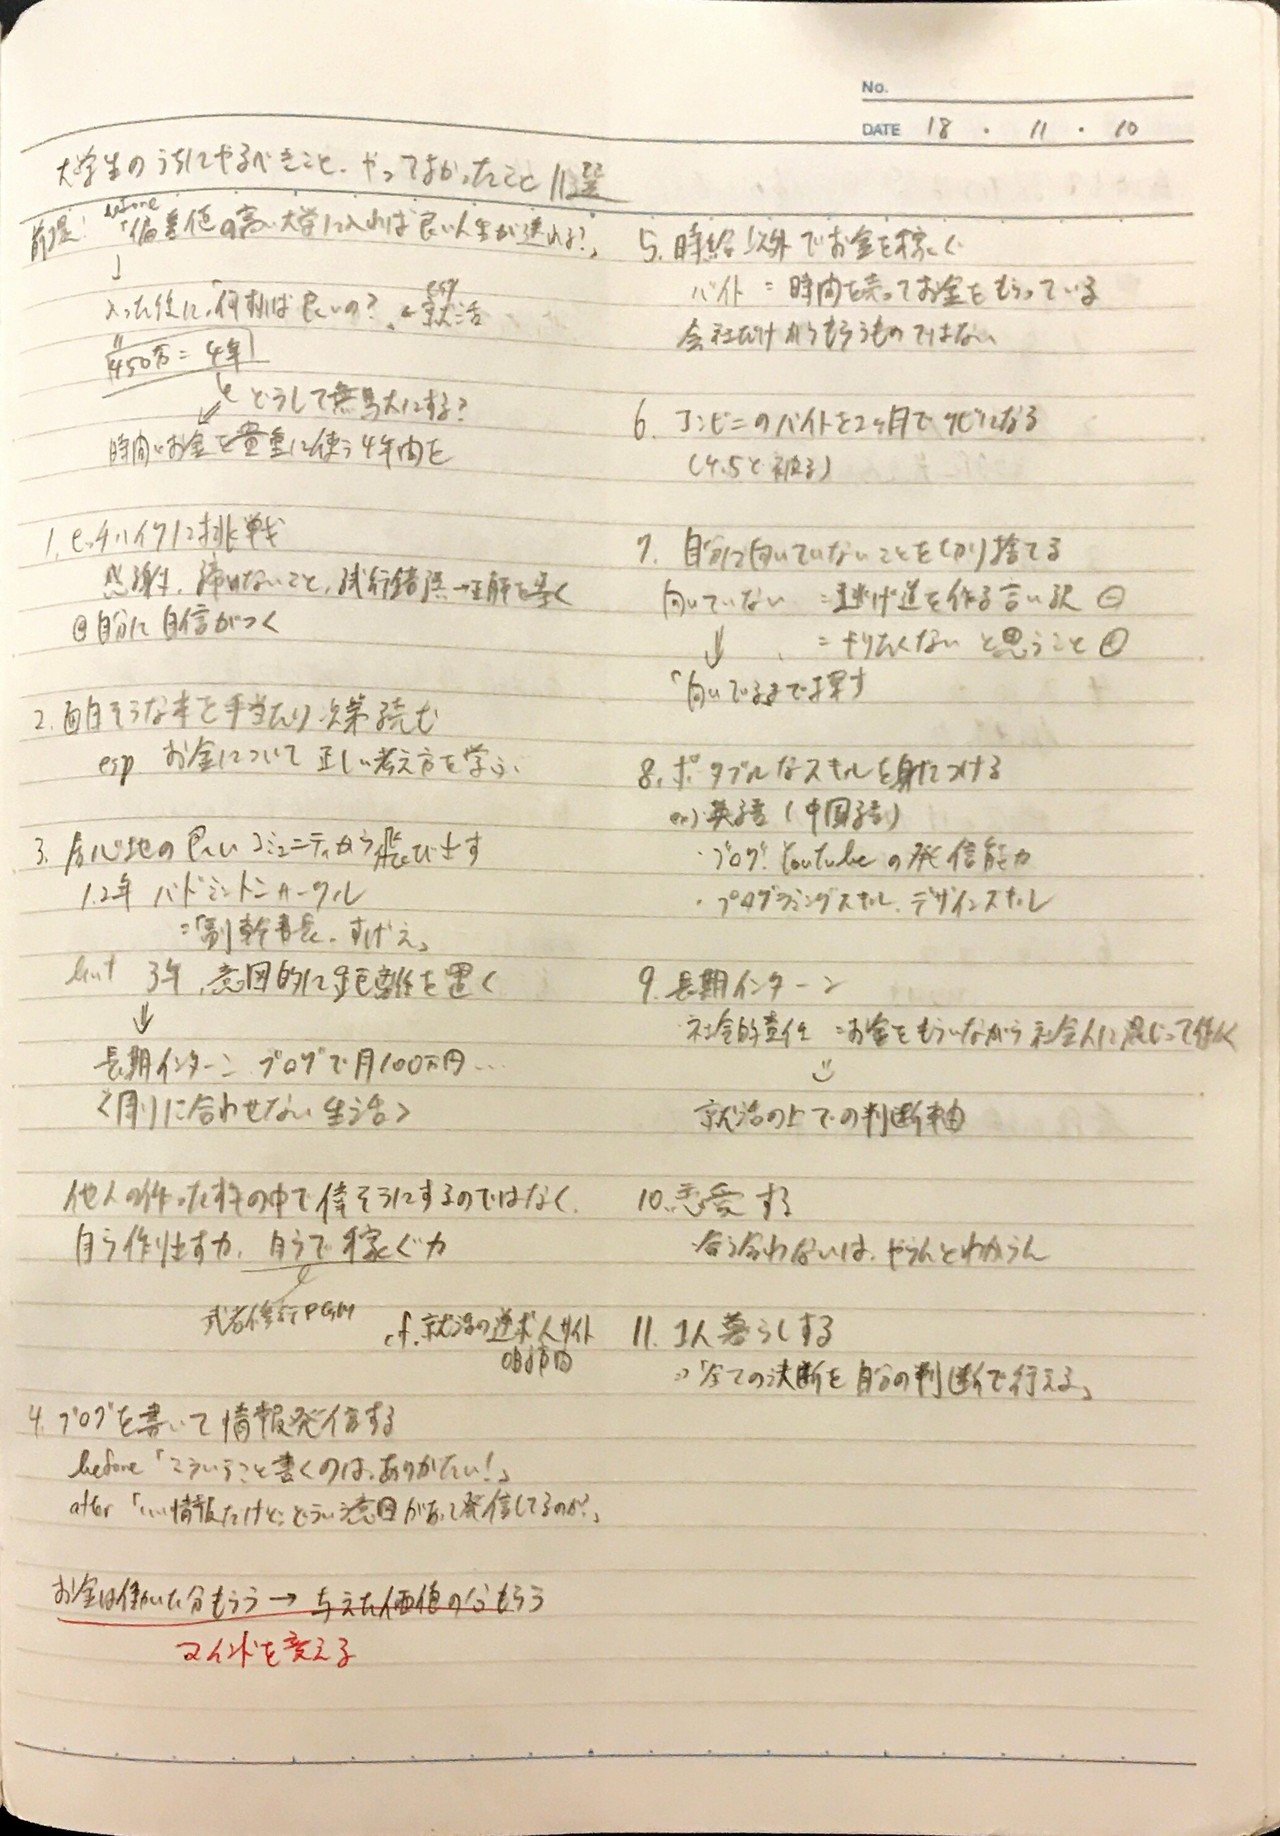 No.
DATE 18 ・ 11 ・ 10
大学生のうちにやるべきこと、やってよかったこと 11選
前提: before「偏差値の高い大学に入れば良い人生が送れる?」
↓
入った後に、何すれば良いの? ← esp 就活
450万 = 4年
どうして無駄にする?
時間とお金を貴重に使う4年間を
1. ヒッチハイクに挑戦
感謝、諦めないこと、試行錯誤→正解を導く
自分に自信がつく
2. 面白そうな本を手当たり次第読む
esp お金について正しい考え方を学ぶ
3. 居心地の良いコミュニティから飛び出す
1.2年 バドミントンサークル
=「副幹事長、すげえ」
but 3年、意図的に距離を置く
⇓
長期インターン ブログで月100万円…
<周りに合わせない生活>
他人の作ったすの中で偉そうにするのではなく、
自ら作り出す力、自らで稼ぐ力
武者修行PGM
cf. 就活の逆求人サイト
4. ブログを書いて情報発信する
before「こういうこと書くのは、ありがたい!」
after「いい情報だけど、どういう意図があって発信してるのか?」
お金は働いた分もらう → 与えた価値の分もらう
マインドを変える
5. 時給以外でお金を稼ぐ
バイト = 時間を売ってお金をもらっている
会社だけからもらうものではない
6. コンビニのバイトを2ヶ月でクビになる
(4.5と被る)
7. 自分に向いていないことを切り捨てる
向いていない = 逃げ道を作る言い訳 ⊖
⇓ = やりたくないと思うこと ⊕
「向いてるまで探す
8. ポータブルなスキルを身につける
ex) 英語 (中国語)
・ブログ、Youtubeの発信能力
・プログラミングスキル、デザインスキル
9. 長期インターン
社会的責任 = お金をもらいながら社会人に混じって働く
⇓
就活の上での判断軸
10. 恋愛する
合う合わないは、やらんとわからん
11. 1人暮らしする
⇒「全ての決断を自分の判断で行える」